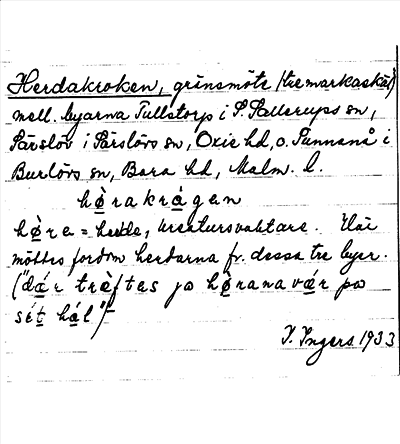 Herdakroken, gränsmöte (tremarkaskäl)
mell. byarna Tullstorp i S. Sallerups sn,
Särslöv i Särslövs sn, Oxie hd, o. Sunnanå i
Burlövs sn, Bara hd, Malm. l.
hòrakrágen
hòre = herde, kreatursvaktare. Här
möttes fordom herdarna fr. dessa tre byar.
("dár tràftes ja hòranavár på
sét hál")
I. Ingers 1933